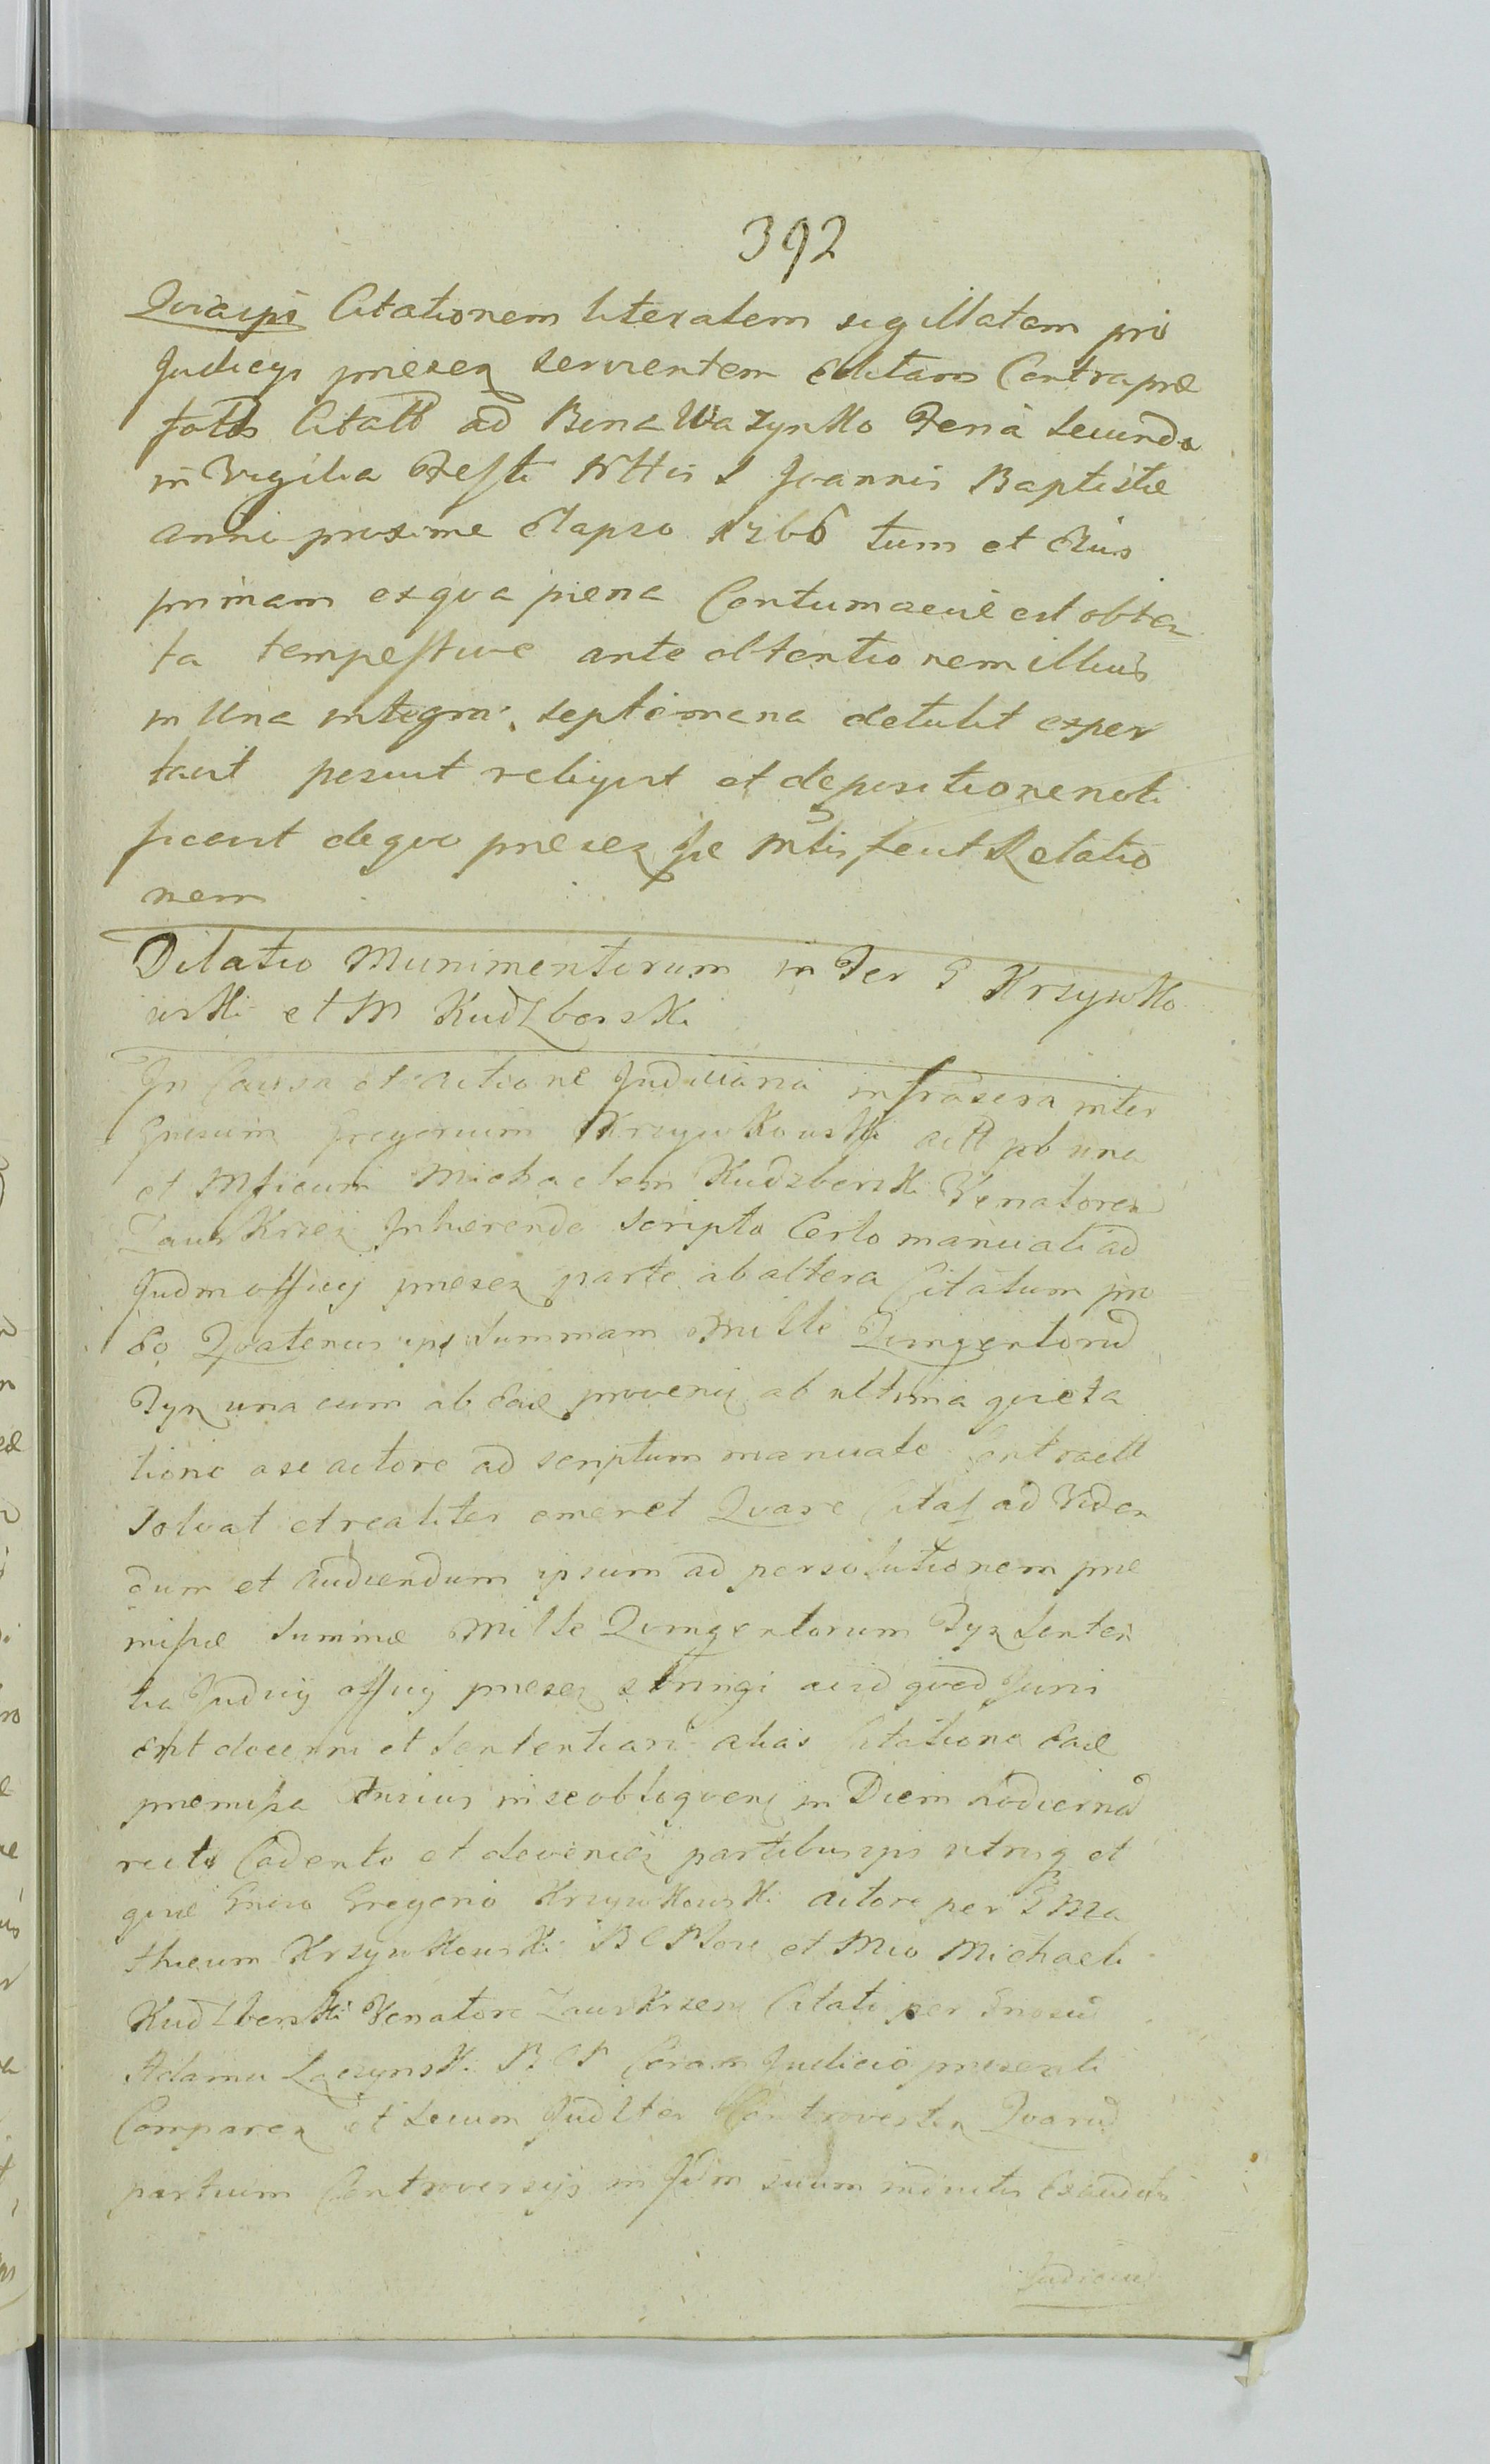 392
Quiaips Citationem literalem sigillatam pro
Judicys præsen servientem Editam Contra præ
fatos Citatt ad Bona Wazynko Feria secunda
in Vigilia Festi Nttis S Joannis Baptistæ
anni proxime Elapso 1766 tum et Eius
primam exqva pœna Contumaciæ est obten
ta tempestive ante obtentionem illius
in Una integra septimana detulit exper
tavit posuit reliqvit et depositione noti
ficavit deqvo præsen Jæ Mtis fecit Relatio
nem
Dilatio Munimentorum in Ter G Krzywko
wski et M Kudzborski
In Causa et Actione Judiciaria infrascra inter
Gnesum Gregorium Krzywkowski actt ab una
et Mficum Michaelem Kudzborski Venatoren
Zawskrzen Inhærendo scripto Certo manuali ad
Judm officij præsen parte ab altera Citatum pro
Eo Qvatenus ips summam Mille Qvingentorum
Tyn una cum ab Eaæ proven ab ultima qvieta
tione a se actore ad scriptum manuale
Solvat et realiter Qvare Citat ad Viden
dum et Audiendum ipsum ad persolutionem præ
missæ summæ Mille Qvingentorum Tyn senten
tia Judicij officij præsen stringi aliud qvod Juris
erit decerni et sententiari alias Citatione Eaæ
præmissa in se obloqven in Diem hodiernam
recte Cadento et devenien partibus ips utrisq et
qvæ Gneso Gregorio Krzywkowski actore per G Ma
thæum Krzywkowski B C P et Mco Michaeli
Kudzberski Venatore Zawskrzen Citato per Gnosum
Adamu Laczynski B C P Coram Judicio præsenti
Comparen et secum Judlter Controverten Qvarum
partium Controversijs in Jdm suum inductis Exauditis
Judicium